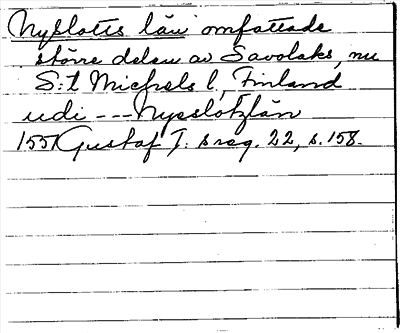 Nyslotts län omfattade
större delen av Savolaks, nu
S:t Michels l., Finland
udi --- Nyslotzlän
1557 Gustaf I: s reg. 22, s. 158.